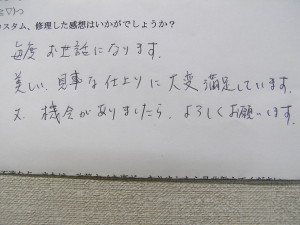 スタム、修理した感想はいかがでしょうか？
毎度お世話になります.
美しい見事な仕上りに大変満足しています.
又、機会がありましたら、よろしくお願いします.